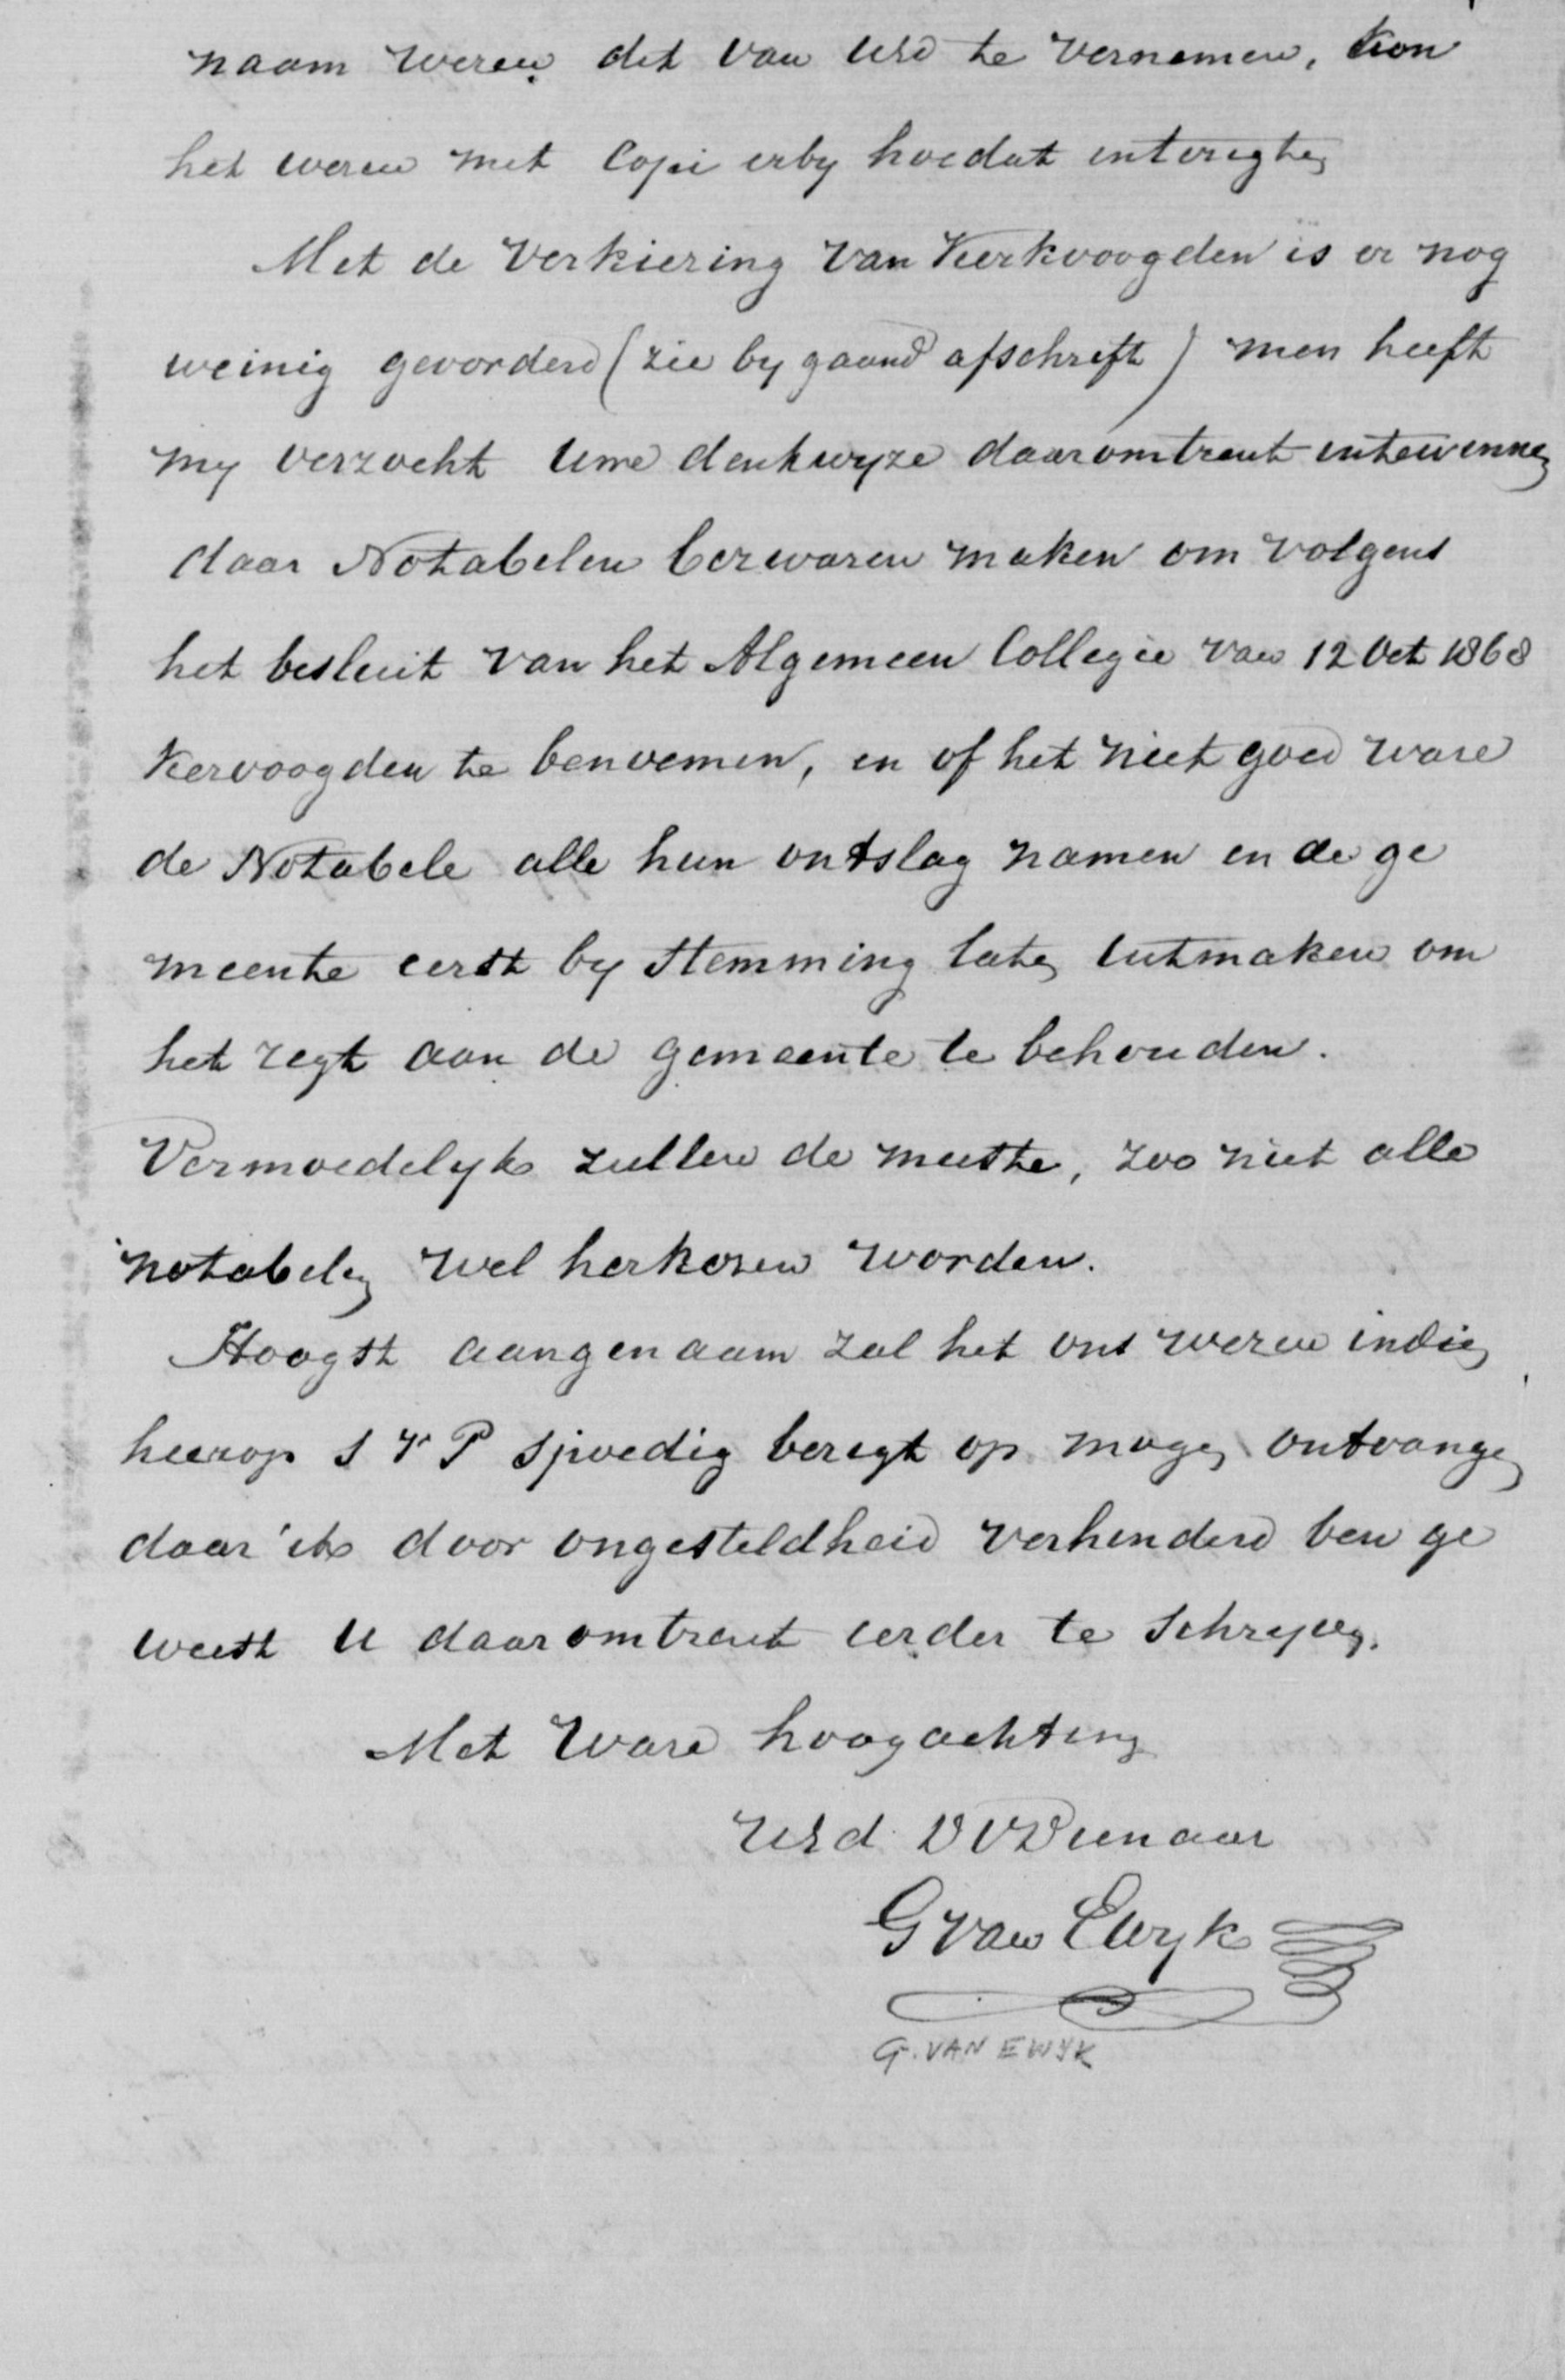 naam wezen dit van UEd te vernemen, kon
het wezen met Copi erby hoedat interigten
Met de Verkiezing van Kerkvoogden is er nog
weinig gevorderd (zie by gaand afschrift) men heeft
my verzocht Uwe denkwyze daaromtrent intewinnen
daar Notabelen bezwaren maken om volgens
het besluit van het Algemeen Collegie van 12 Oct 1868
Kervoogden te benoemen, en of het niet goed ware
de Notabele alle hun ontslag namen en de ge
meente eerst by stemming laten uitmaken om
het regt aan de gemeente te behouden.
Vermoedelyk zullen de meeste, zoo niet alle
notabelen wel herkozen worden.
Hoogst aangenaam zal het ons wezen indien
hierop s v P spoedig berigt op mogen ontvangen
daar ik door ongesteldheid verhinderd ben ge
weest U daaromtrent eerder te schryven.
Met Ware hoogachting
UEd DVDienaar
G van Ewyk
G. VAN EWYK